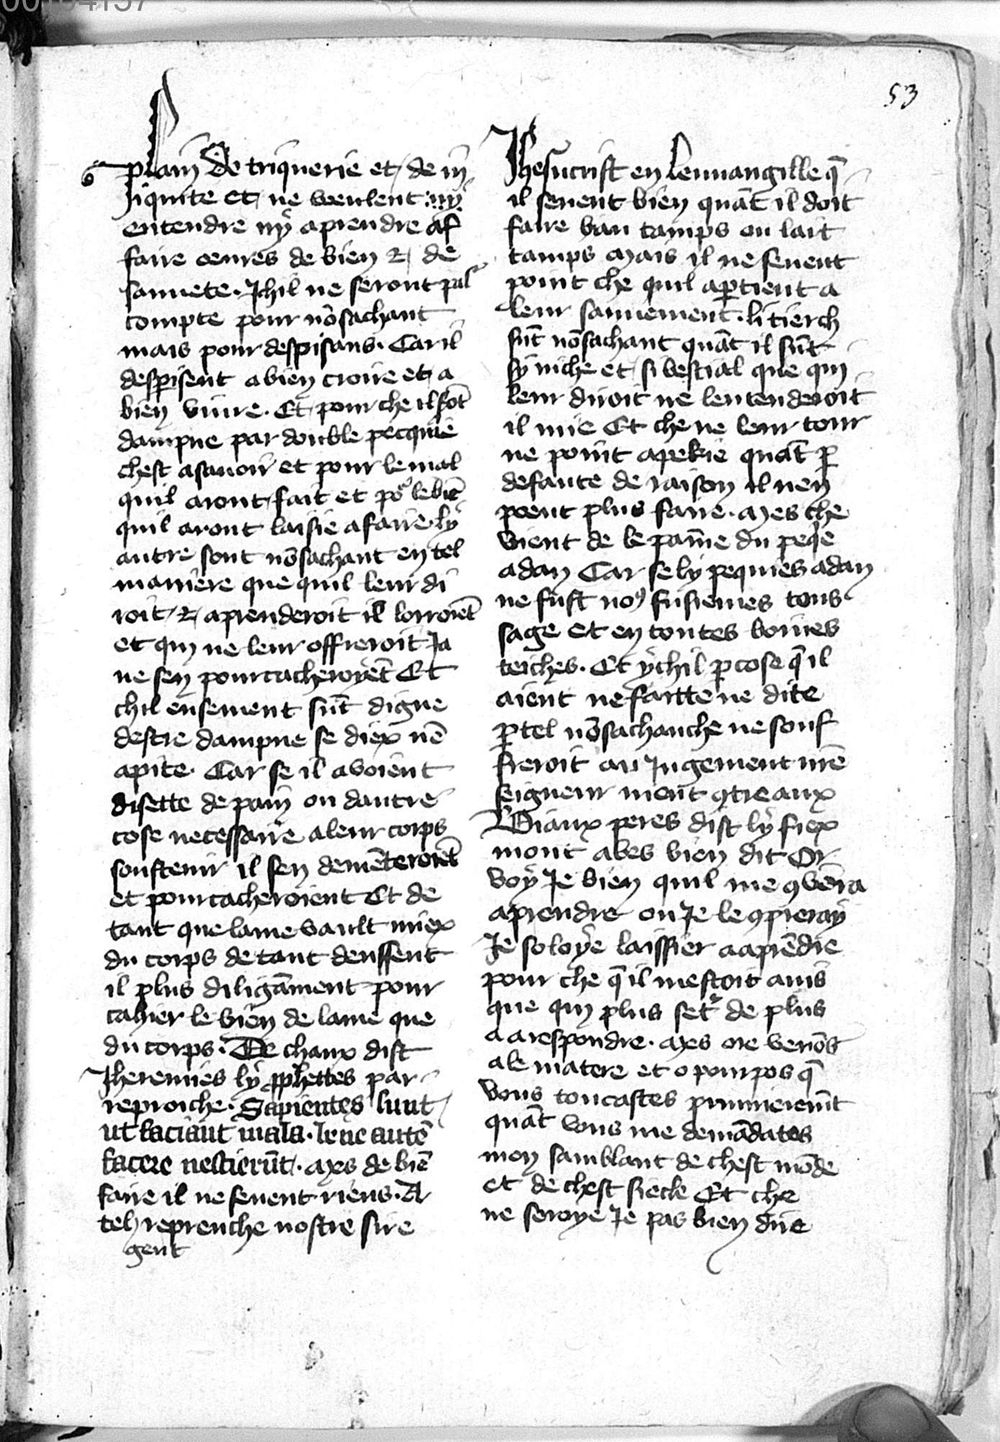 53
plain de triquerie et de in
iiquite et ne veulent ny
entendre ny aprendre af
faire oeures de bien et de
sauuete. Ichil ne seront pas
compte pour nõsachant
mais pour despisans. Car il
despisent a bien croire et a
bien viure. Et pour che il sõt
dampne par double pecquie
chest asauoir et pour le mal
quil aront fait et por le biẽ
quil aront laisie a faire. ly
autre sont nõsachant en tel
maniere que quil leur di
roit et aprenderoit il lorroiẽt
et qui ne leur offreroit Ja
ne sen pourcacheroyẽt Et
chil ensement sũt digne
destre dampne se diex nẽ
a pite. Car se il avoient
disette de pain ou dautre
cose necessaire a leur corps
soustenir il sen demẽteroiẽt
et pourcacheroient Et de
tant que lame vault miex
du corps de tant deussent
il plus diligãment pour
cachier le bien de lame que
du corps. De chaux dist
Jheremies ly prophettes par
reproiche. Sapientes sunt
ut faciant mala. bene autẽ
facere nescierũt. Mes de biẽ
faire il ne seuent riens. A
telz reprenche nostre sire
gent
Jhesucrist en leuuangille q̃
il seuent bien quãt il doit
faire biau tamps ou lait
tamps Mais il ne seuent
point che quil apertient a
leur sauuement. li tierch
sũt nõsachant quãt il sũt
sy niche et si bestial que qui
leur diroit ne lentenderoit
il mie Et che ne leur tour
ne point a pekie quãt p̱
defaute de raison il nen
poent plus faire. Mes che
vient de le paine du peqe
adan Car se ly pequies adan
ne fust no9 fusiemes tous
sage et en toutes boines
teiches. Et ychil p̱ cose q̃ il
aient ne faitte ne dite
p̱ tel nõsachanche ne souf
freroit au Jugement nr̃e
seigneur nient 9tre aux
Biaux peres dist ly fiex
mont aues bien dit Or
voy Je bien quil me 9vẽra
aprendre ou Je le 9pieray
Je soloye laissier a aprẽdre
pour che q̃ il mestoit auis
que qui plus set de plus
a a respondre. Mes ore venõs
a le matere et o pourpos q̃
vous toucastes primieremẽt
quãt vous me demãdates
mon samblant de chest mõde
et de chest siecle Et che
ne seroye Je pas bien dire